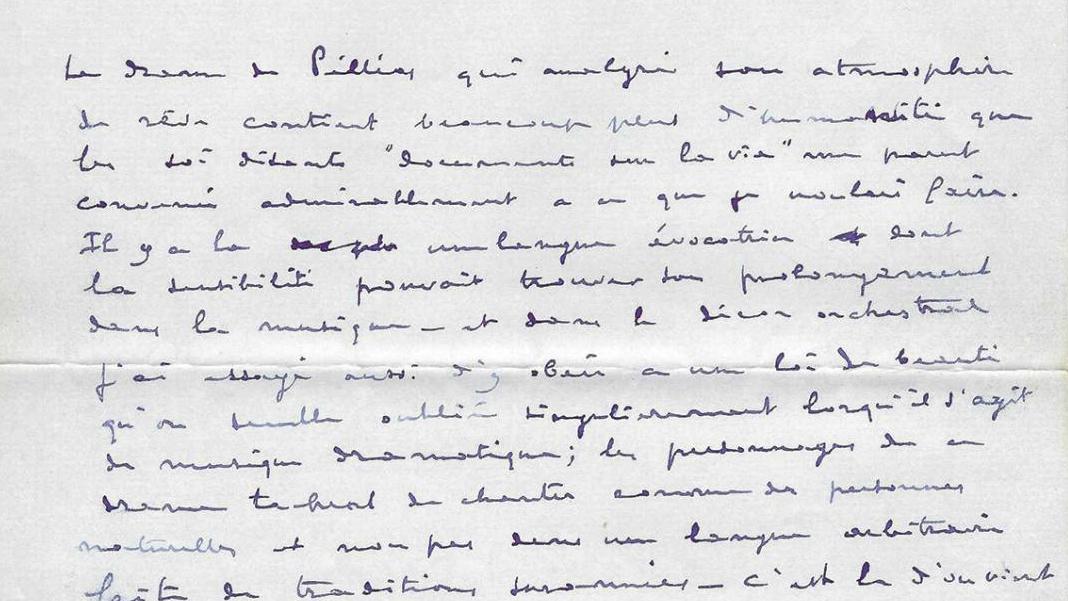 Le drame de Pélléas qui malgré son atmosphère
de rêve contient beaucoup plus d'humanité que
les soi disants "documents sur la vie" me parut
convenir admirablement à ce que je voulais faire.
Il y a là une langue évocatrice dont
la sensibilité pouvait trouver son prolongement
dans la musique – et dans le décor orchestral
J'ai essayé aussi d'y obéir à une loi de beauté
qu'on semble oublier singulièrement lorsqu'il s'agit
de musique dramatique; les personnages de ce
drame tachent de chanter comme des personnes
naturelles et non pas dans une langue arbitraire
faite de traditions surannées – c'est là d'où vient